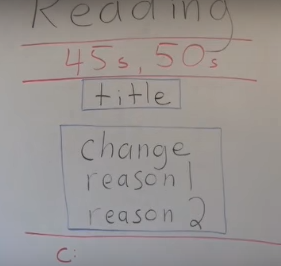 Reading
45s, 50s
title
change
reason 1
reason 2
C: